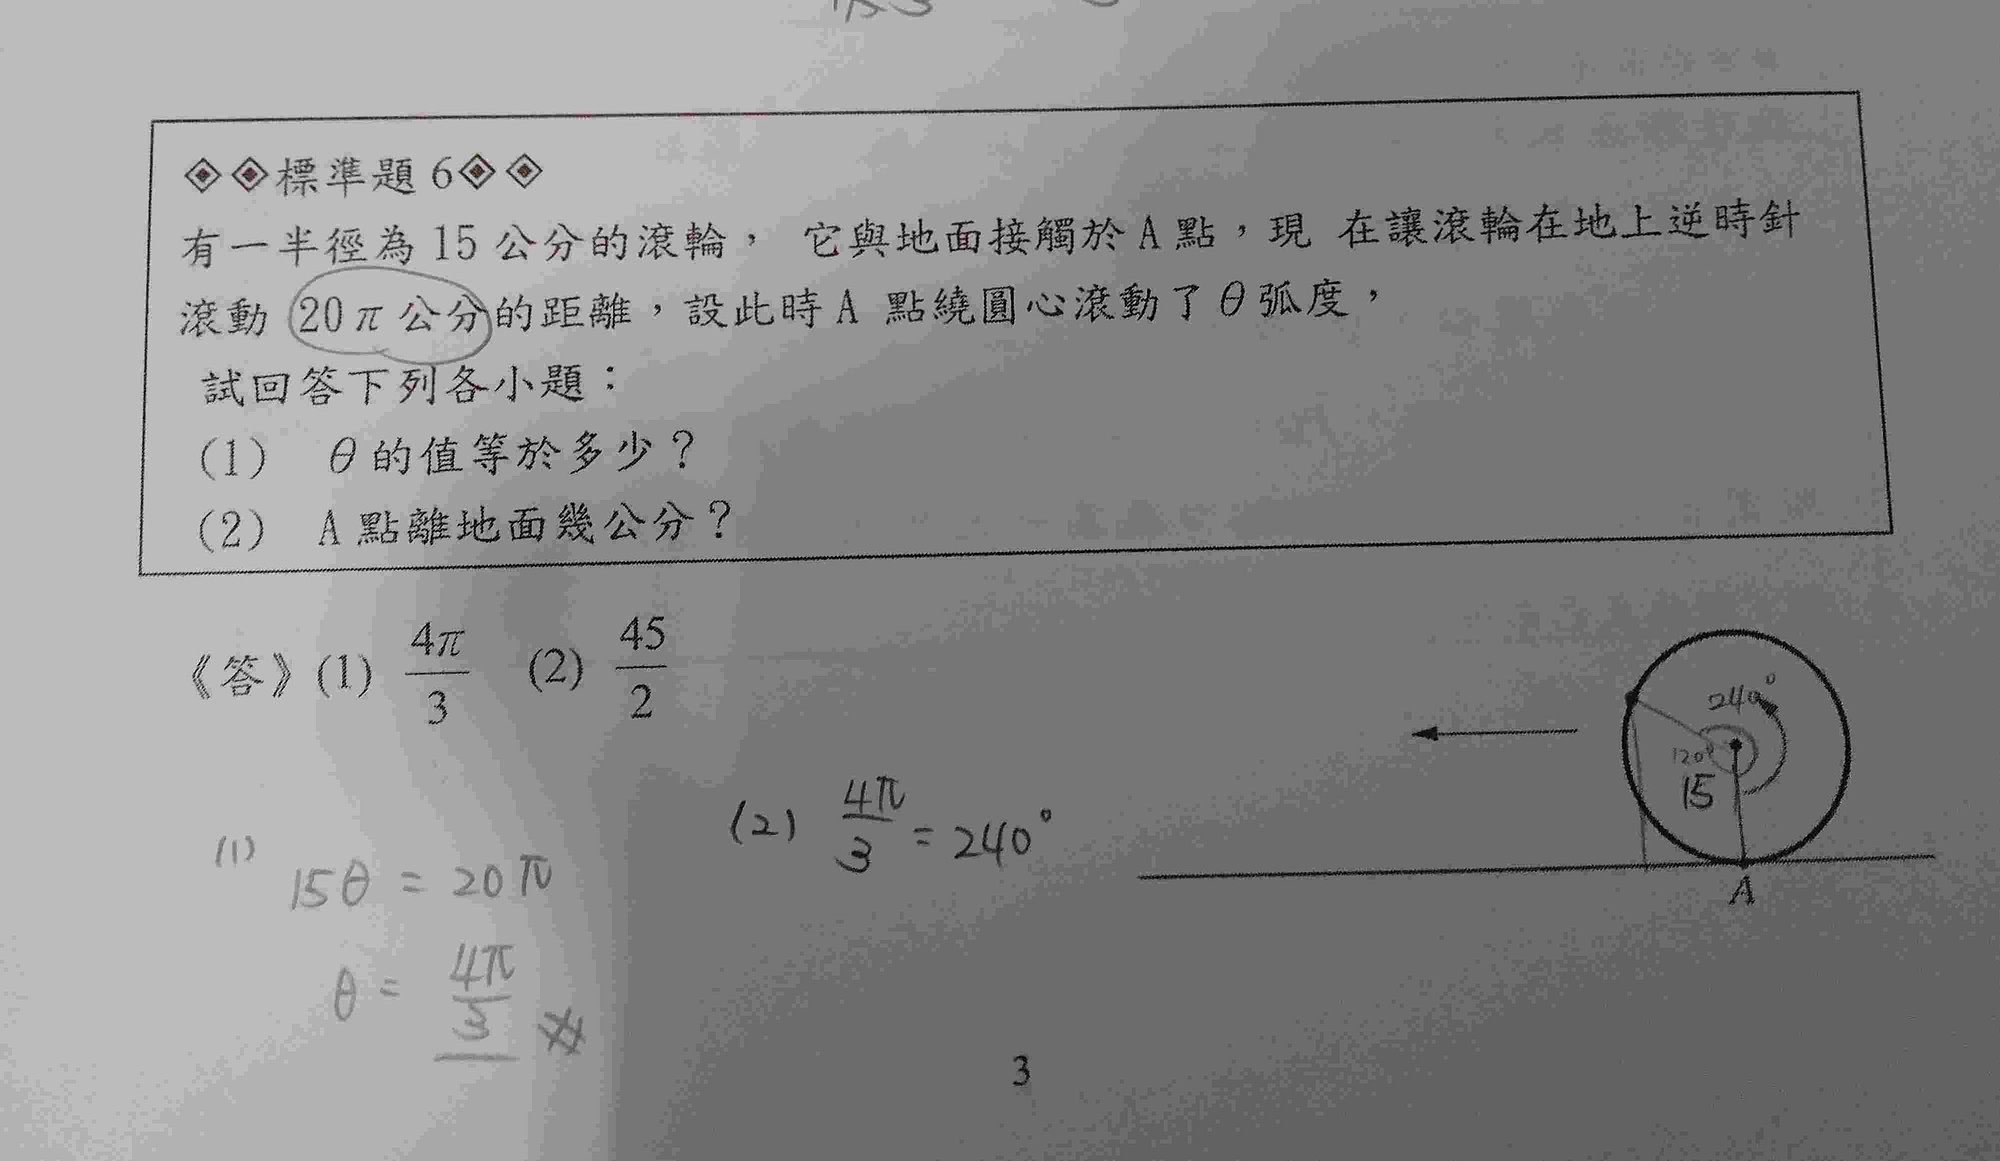 ◈◈標準題 6◈◈
有一半徑為 15 公分的滾輪， 它與地面接觸於 A 點，現 在讓滾輪在地上逆時針
滾動 20π 公分的距離，設此時 A 點繞圓心滾動了 θ 弧度，
試回答下列各小題：
(1) θ 的值等於多少？
(2) A 點離地面幾公分？
《答》(1) 4π/3 (2) 45/2
240°
120°
15
A
(1) 15θ = 20π
θ = 4π/3
(2) 4π/3 = 240°
3